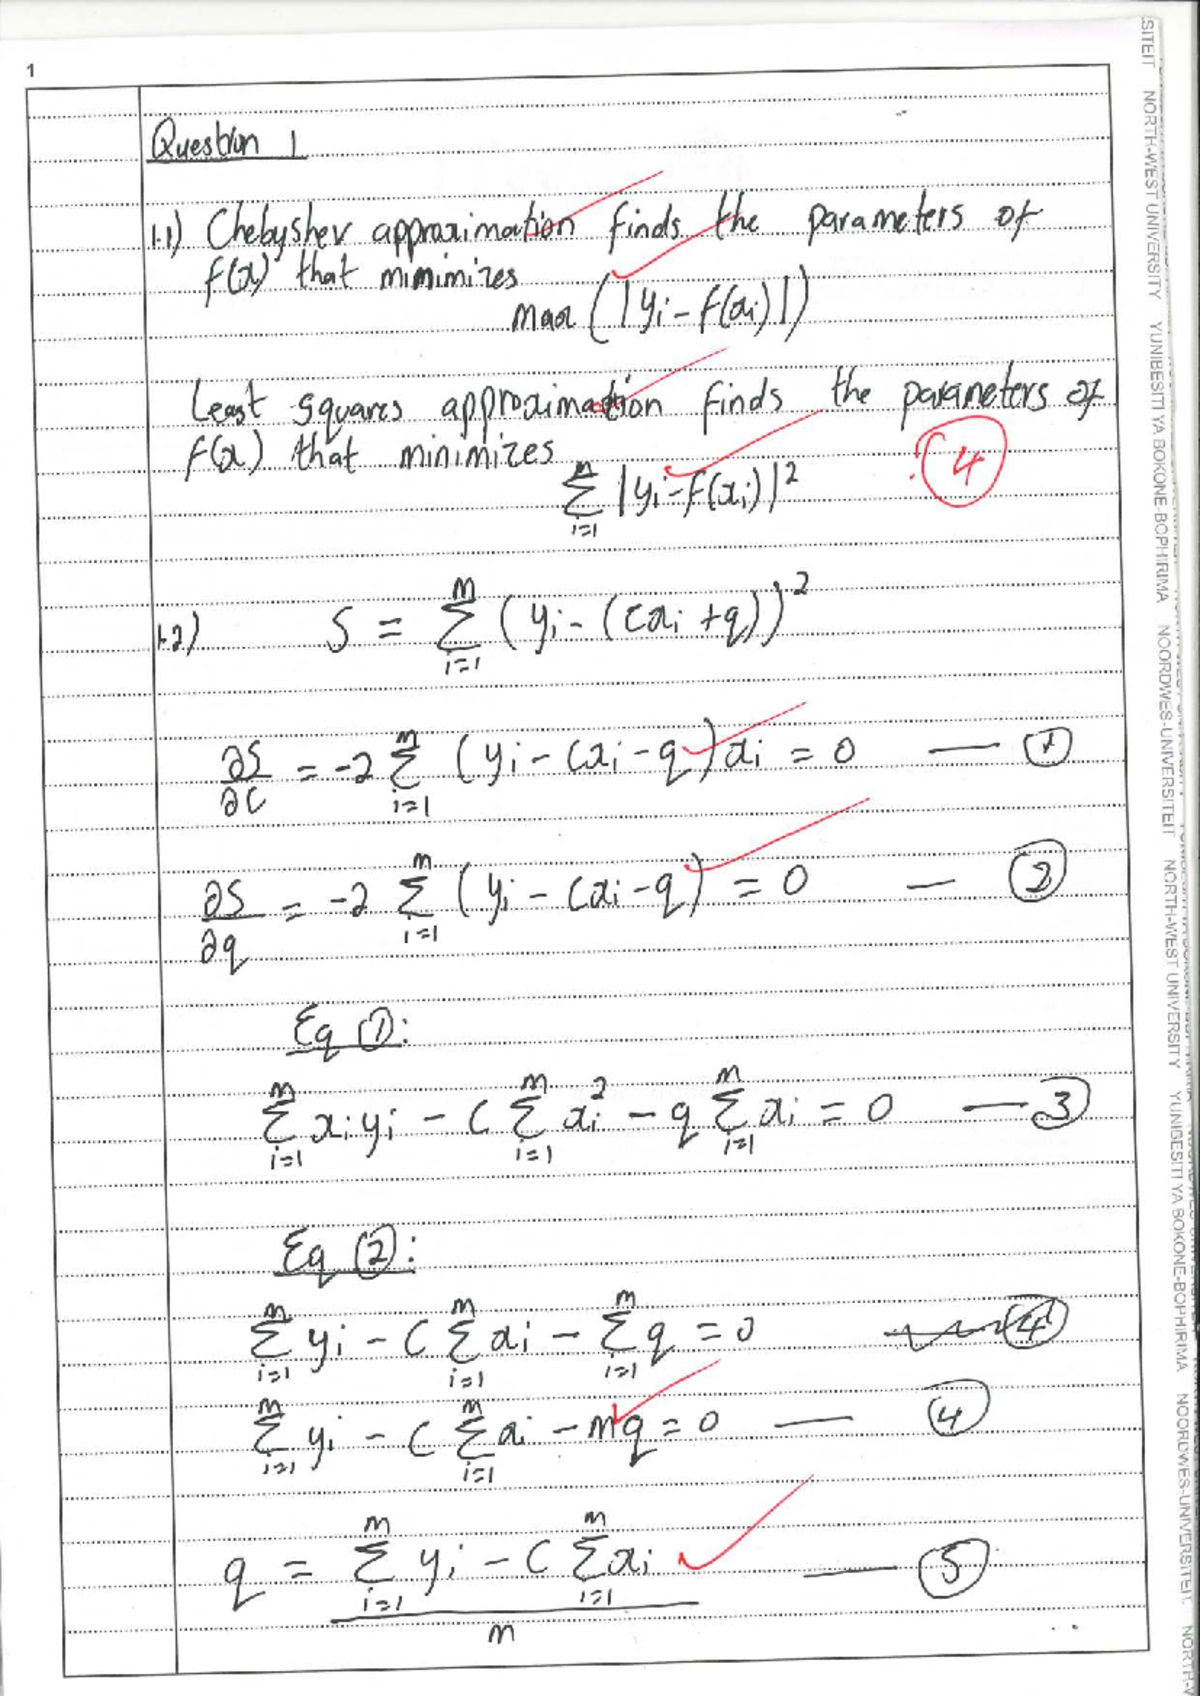 1
Question 1
1.1) Chebyshev approximation finds the parameters of
f(x) that minimizes
max (|yᵢ - f(xᵢ)|)
Least squares approximation finds the parameters of
f(x) that minimizes
m Σ i=1 |yᵢ - f(xᵢ)|²
4
1.2) S = m Σ i=1 (yᵢ - (cxᵢ + q))²
∂S/∂c = -2 m Σ i=1 (yᵢ - cxᵢ - q)xᵢ = 0 — ①
∂S/∂q = -2 m Σ i=1 (yᵢ - cxᵢ - q) = 0 — ②
Eq ①:
m Σ i=1 xᵢyᵢ - c m Σ i=1 xᵢ² - q m Σ i=1 xᵢ = 0 — ③
Eq ②:
m Σ i=1 yᵢ - c m Σ i=1 xᵢ - m Σ i=1 q = 0 ④
m Σ i=1 yᵢ - c m Σ i=1 xᵢ - mq = 0 — ④
q = m Σ i=1 yᵢ - c m Σ i=1 xᵢ — ⑤
m
SITEIT NORTH-WEST UNIVERSITY YUNIBESITI YA BOKONE-BOPHIRIMA NOORDWES-UNIVERSITEIT NORTH-WEST UNIVERSITY YUNIBESITI YA BOKONE-BOPHIRIMA NOORDWES-UNIVERSITEIT NORTH-W